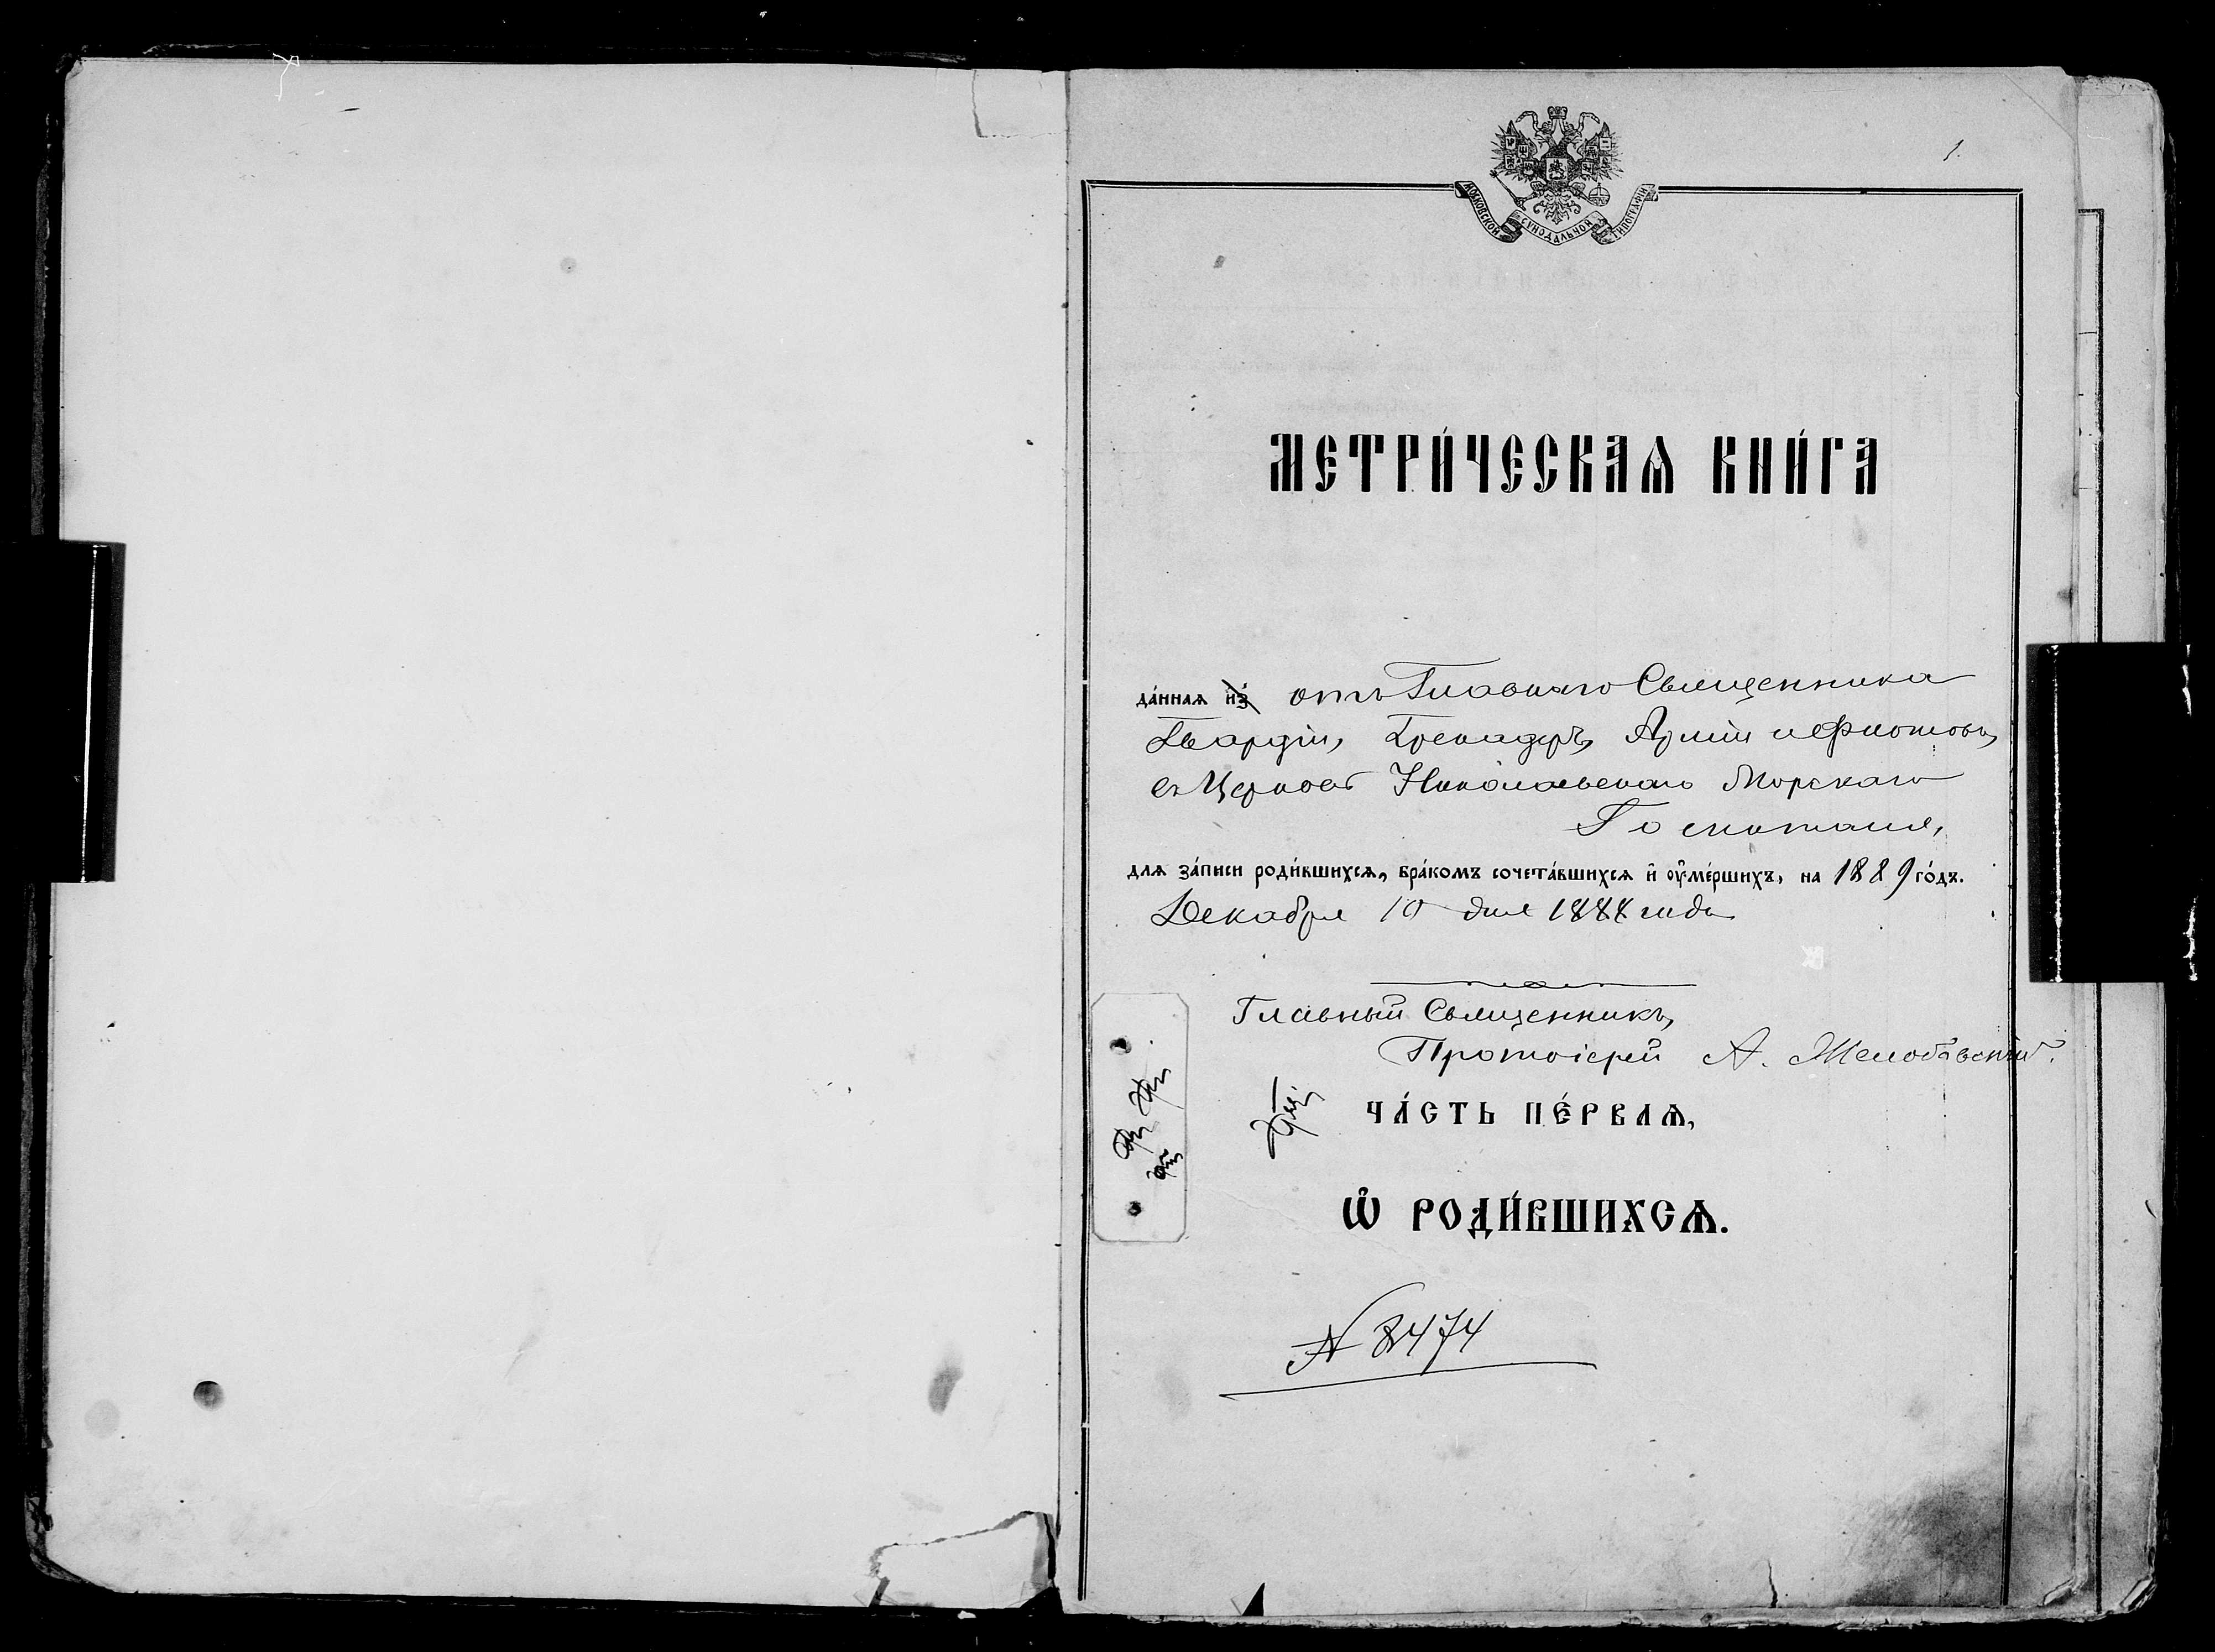 1.
МОСКОВСКОЙ СѴНОДАЛЬНОЙ ТИПОГРАФІИ
МЕТРИ́ЧЕСКАѦ КНИ́ГА
да́ннаѧ и҆з̾ отъ Главнаго Священника
Гвардіи, Гренадеръ, Арміи и Флотовъ,
въ Церковь Николаевскаго Морскаго
Госпиталя,
длѧ за́писи роди́вшихсѧ, бра́комъ сочета́вшихсѧ и҆ ᲂу҆ме́ршихъ, на 1889 го́дъ.
Декабря 10 дня 1888 года
Главный Священникъ,
Протоіерей А. Желобовскій.
ЧА́СТЬ ПЕ́РВАѦ,
Ѡ҆ РОДИ́ВШИХСѦ.
№ 8474